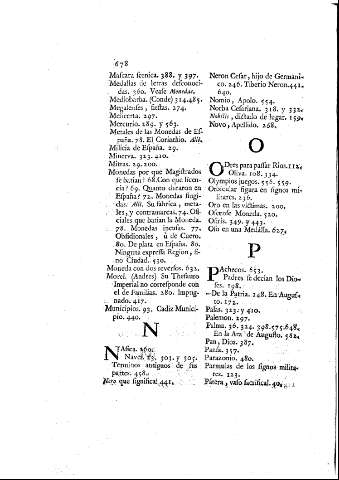 678
Mascara scenica. 388. y 397.
Medallas de letras desconoci-
das. 360. Vease Monedas.
Medioborba. (Conde) 314.485.
Megalenses, fiestas. 274.
Melicerta. 297.
Mercurio. 289. y 563.
Metales de las Monedas de Es-
paña. 78. El Corinthio. Alli.
Milicia de España. 29.
Minerva. 323. 410.
Mitras. 29. 200.
Monedas por que Magistrados
se batian? 68. Con que licen-
cia? 69. Quanto duraron en
España? 72. Monedas fingi-
das. Alli. Su fabrica, meta-
les, y contramarcas. 74. Ofi-
ciales que batian la Moneda.
78. Monedas incusas. 77.
Obsidionales, ù de Cuero.
80. De plata en España. 80.
Ninguna expressa Region, si-
no Ciudad. 530.
Moneda con dos reversos. 632.
Morel. (Andres) Su Thesauro
Imperial no corresponde con
el de Familias. 280. Impug-
nado. 417.
Municipios. 93. Cadiz Munici-
pio. 440.
N
NAsica. 260.
Naves. 83. 303. y 305.
Terminos antiguos de sus
partes. 458.
Nero que significa? 441.
Neron Cesar, hijo de Germani-
co. 246. Tiberio Neron. 441.
640.
Nomio, Apolo. 554.
Norba Cesarina. 318. y 332.
Nobilis, dictado de lugar. 159.
Novo, Apellido. 268.
O
ODres para passar Rios. 112.
Oliva. 108. 334.
Olympios juegos. 556. 559.
Orbicular figura en signos mi-
litares. 236.
Oro en las victimas. 200.
Oferose Moneda. 520.
Osiris. 349. y 443.
Ojo en una Medalla. 627.
P
PAchecos. 653.
Padres se decian los Dio-
ses. 198.
- De la Patria. 248. En Augus-
to. 172.
Palas. 323. y 410.
Palemon. 297.
Palma. 36. 324. 398. 575. 648.
En la Ara de Augusto. 582.
Pan, Dios. 387.
Panis. 357.
Parazonio. 480.
Parmulas de los signos milita-
res. 123.
Pátera, vaso sacrifical. 40.